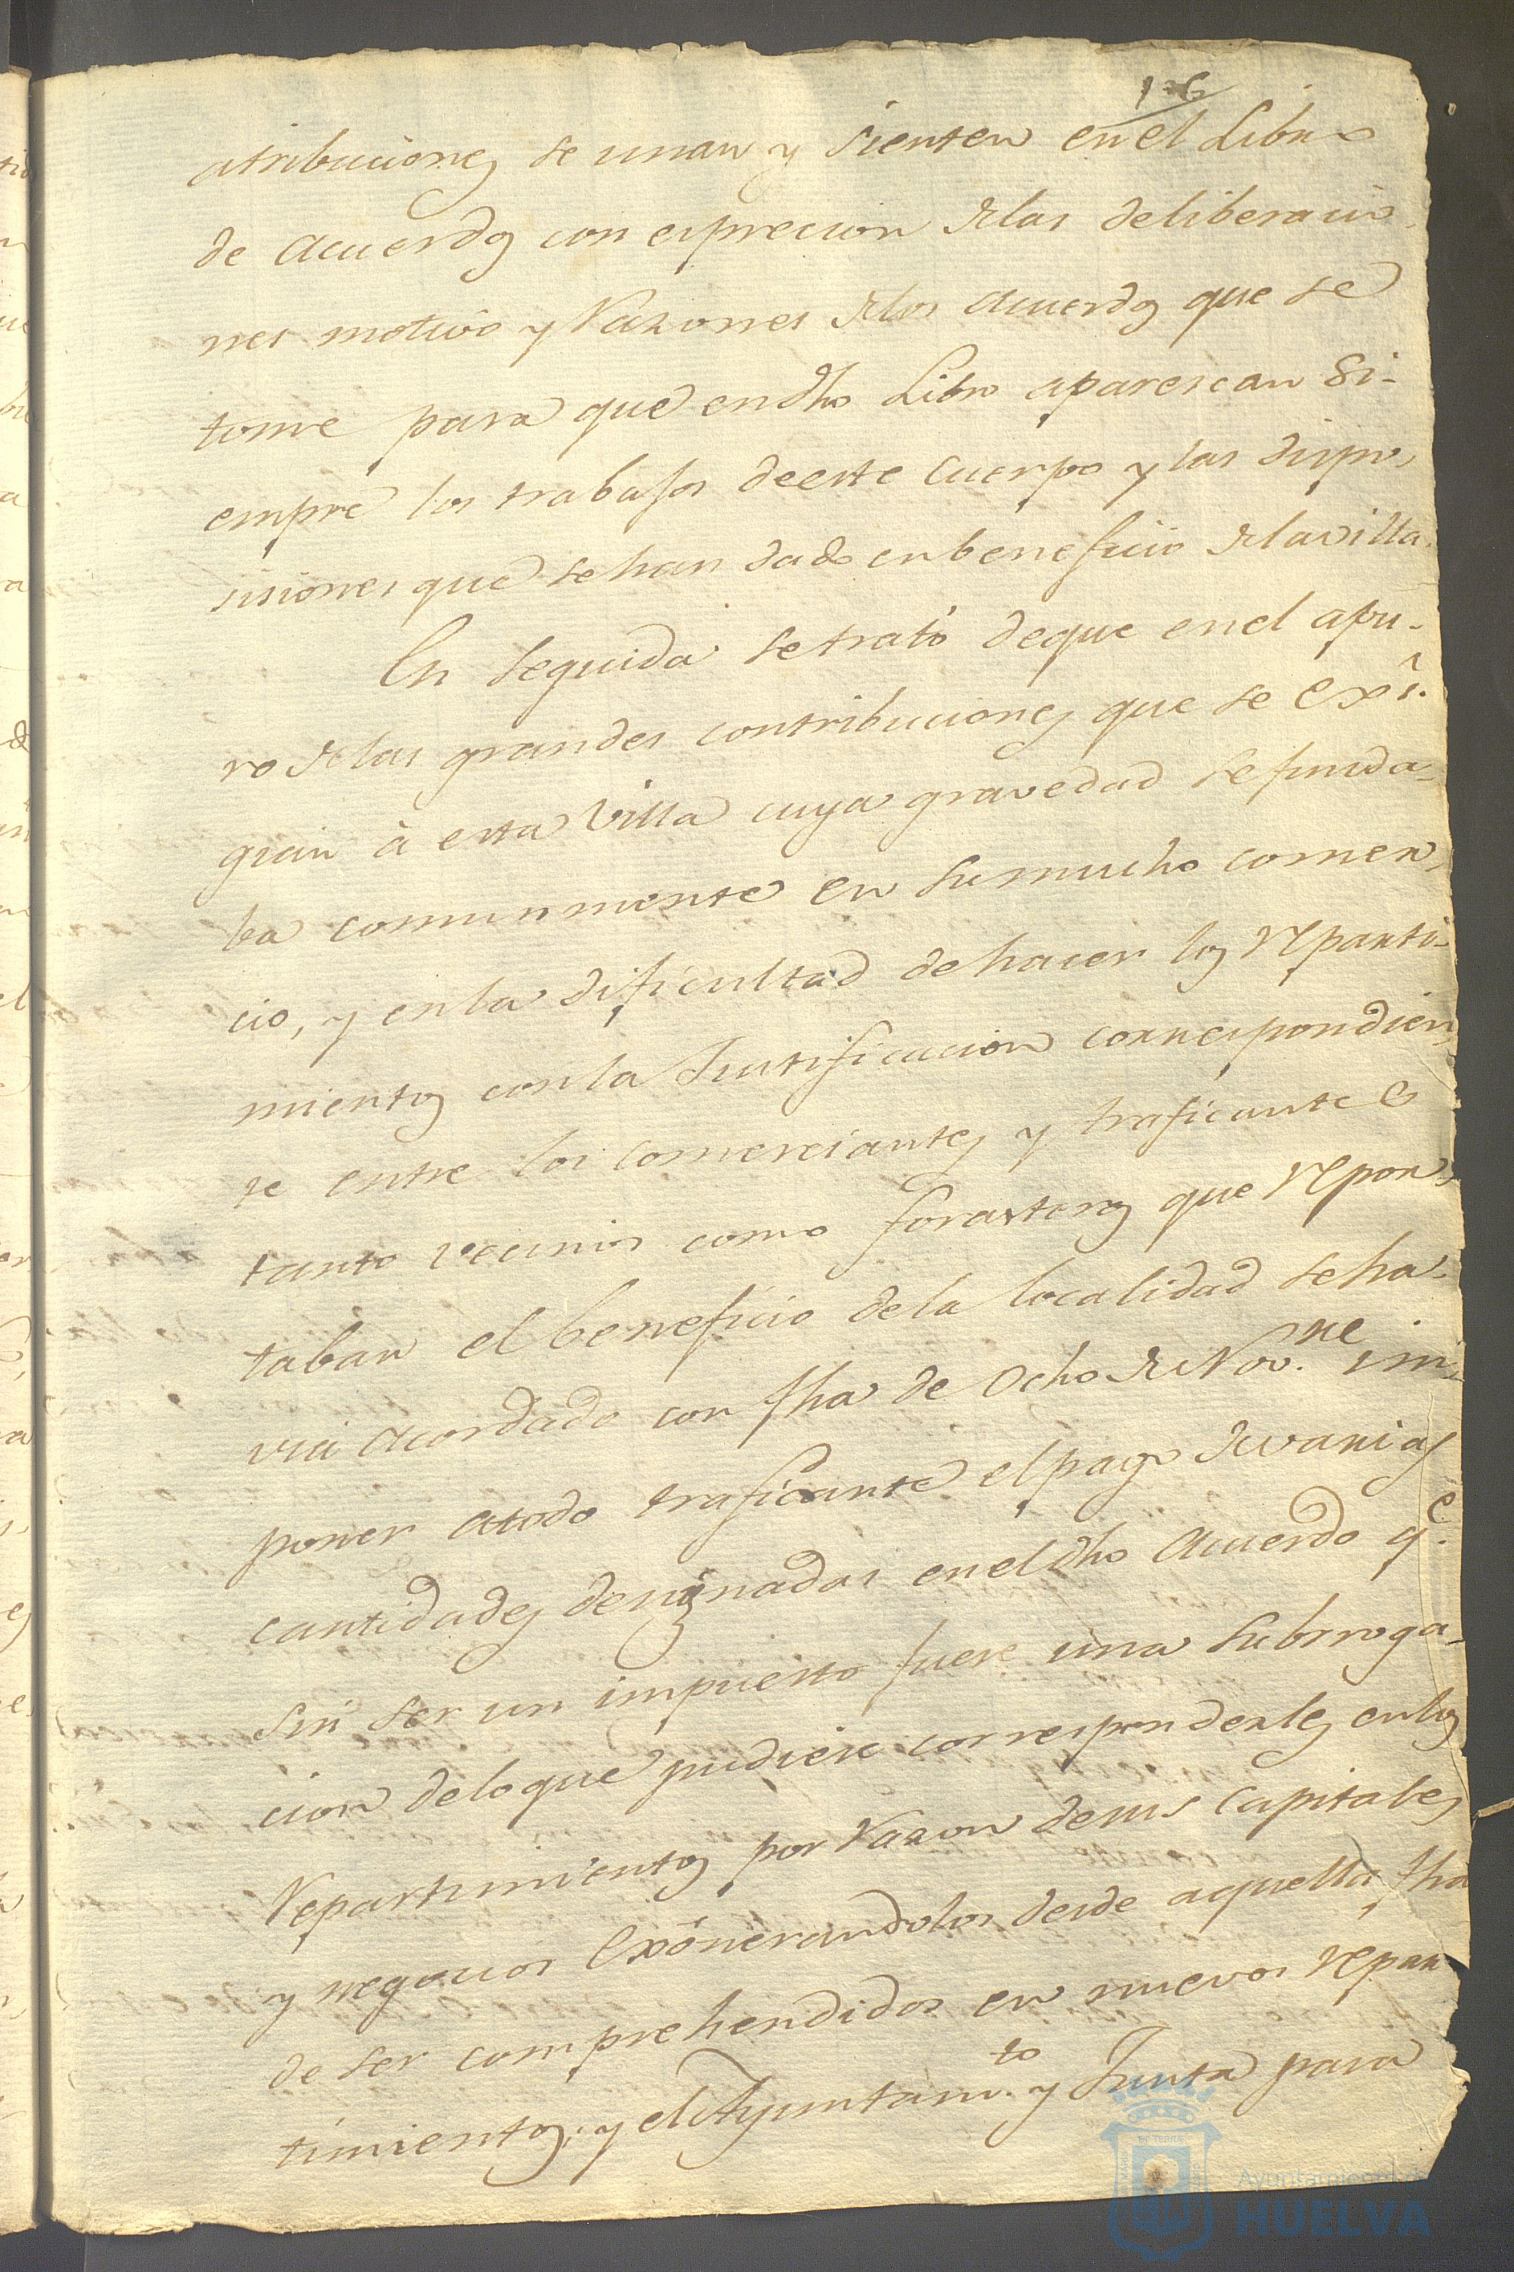 126
atribuciones se unan y sienten en el Libro
de acuerdos con exprecion de las deliberacio-
nes motivo y Razones de los acuerdos que se
tome para que en dho Libro aparescan Si-
empre los trabajos de este Cuerpo y las dispo-
siciones que se han dado en beneficio de la villa.
En seguida se trató de que en el apu-
ro de las grandes contribuciones que se exî-
gian à esta Villa cuya gravedad se funda-
ba comunmente en su mucho comer-
cio, y en la dificultad de hacer los reparti-
mientos con la Justificacion correspondien-
te entre los comerciantes y traficantes
tanto vecinos como forasteros que repor-
taban el beneficio de la localidad se ha-
via acordado con fha de ocho de Nov.re im-
poner a todo traficante el pago de varias
cantidades designadas en el dho acuerdo q.e
sin ser un impuesto fuese una subrroga-
cion de lo que pudiese corresponderles en los
Repartimientos por Razon de sus Capitales
y negocios exônerandolos desde aquella fha
de ser comprehendidos en nuevos repar-
timientos; y el Ayuntam.to y Junta para
Ayuntamiento de
HUELVA